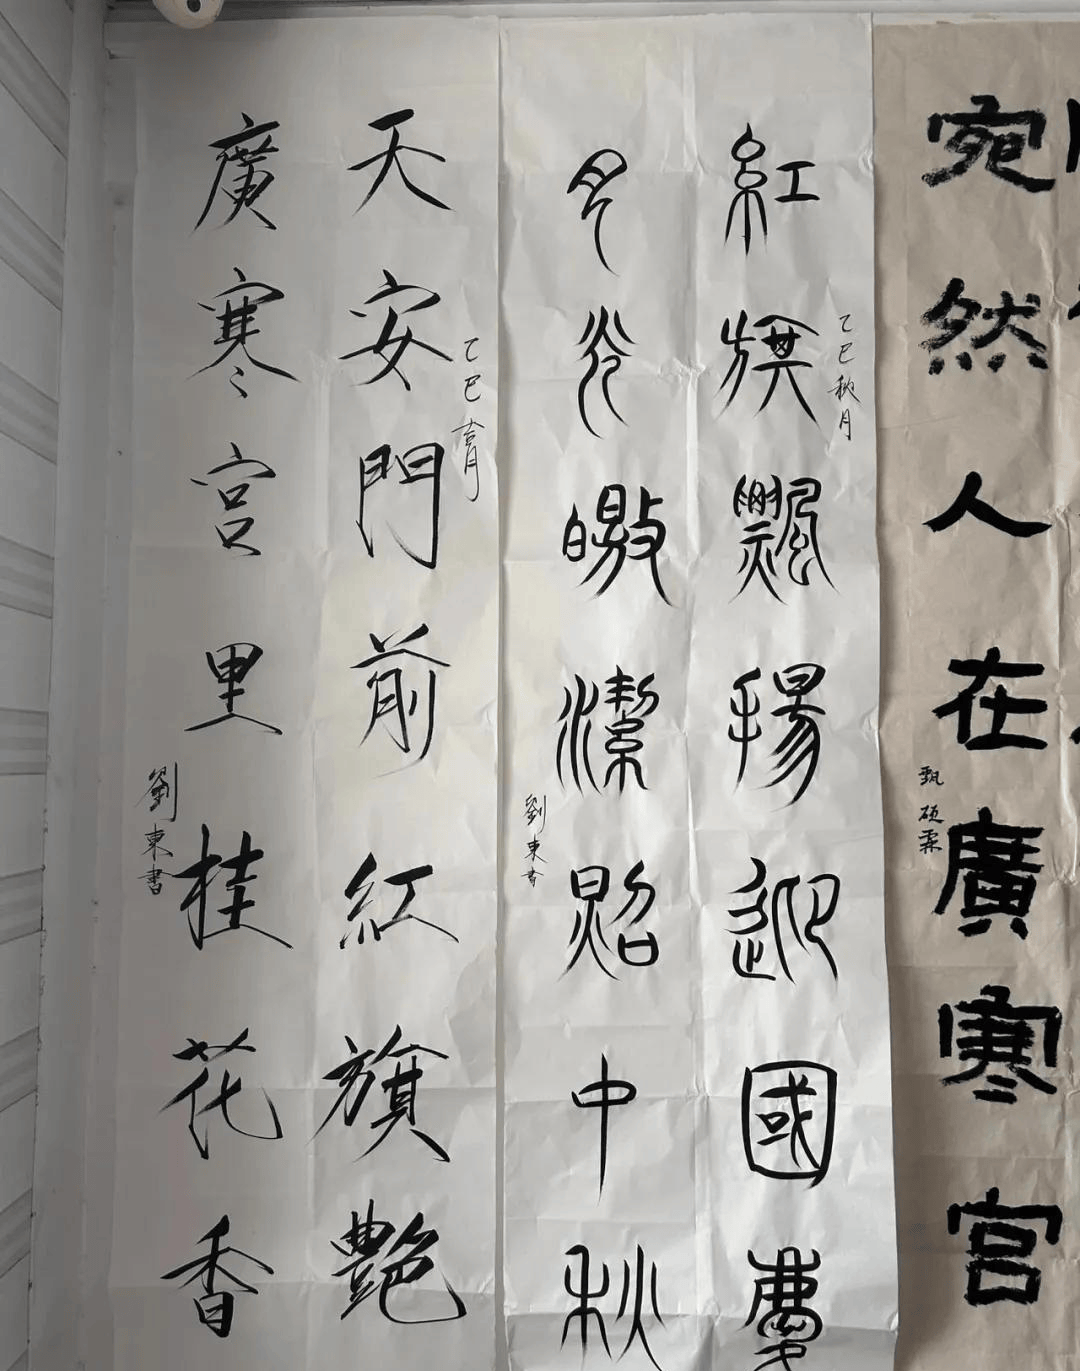 宛然人在廣寒宮
甄硕霖
乙巳秋月
紅旗飄揚迎國慶
月光皦潔照中秋
劉東書
乙巳吉月
天安門前紅旗艷
廣寒宮里桂花香
劉東書